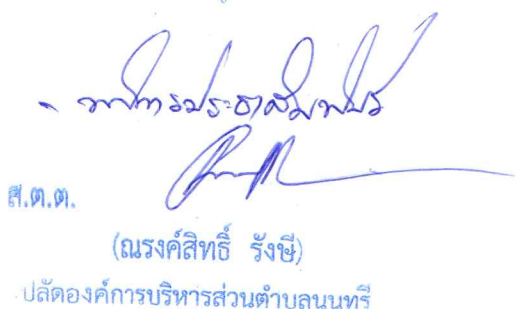 - ดำเนินการประชาสัมพันธ์
ส.ต.ต.
(ณรงค์สิทธิ์ รังษี)
ปลัดองค์การบริหารส่วนตำบลนนทรี